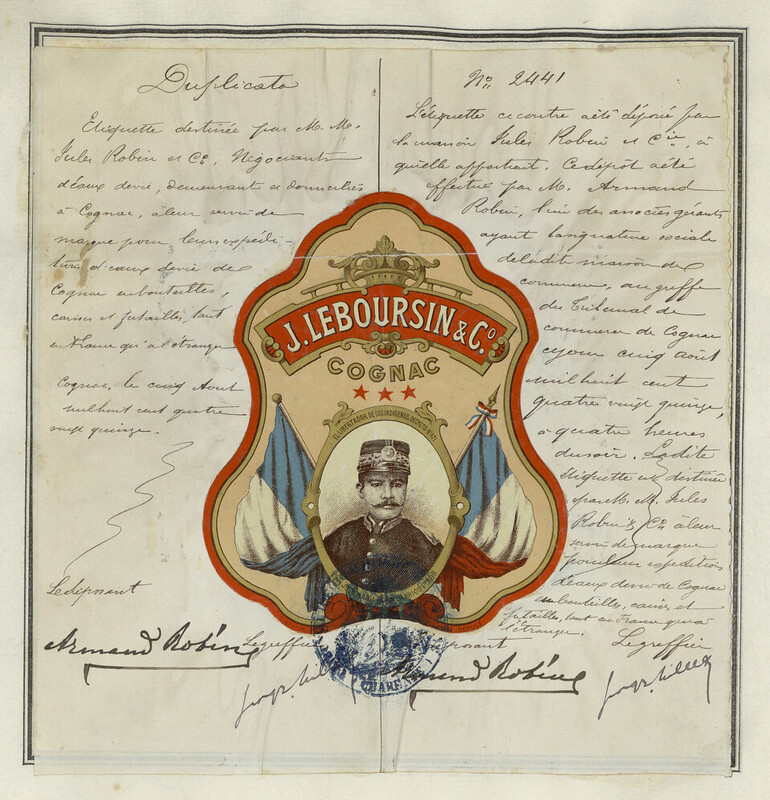 Duplicata
Etiquette destinée par M. M.
Jules Robin et Cº, Négociants
d'eaux devie, demeurant et domiciliés
à Cognac, à leur servir de
marque pour leurs expédi-
tions d'eaux devie de
Cognac en bouteilles,
caisses et futailles, tant
en France qu'à l'étranger
Cognac, le cinq Aout
mil huit cent quatre
vingt quinze.
Le déposant
Armand Robin
Le greffier
Nº 2441
L'étiquette ci contre a été déposée par
la maison Jules Robin et Cie, à
qu'elle appartient. Ce dépôt a été
effectué par M. Armand
Robin, l'un des associés gérants
ayant la signature sociale
de ladite maison de
commerce, au greffe
du Tribunal de
commerce de Cognac
ce jour cinq Août
mil huit cent
quatre vingt quinze,
à quatre heures
du soir. Ladite
étiquette est destinée
par M. M. Jules
Robin & Cº à leur
servir de marque
pour leurs expéditions
d'eaux devie de Cognac
en bouteilles, caisses et
futailles, tant en France qu'à
l'étranger.
Le déposant
Armand Robin
Le greffier
J. LEBOURSIN & Cº
COGNAC
EL LIBERTADOR DE LOS INDIGENAS
CHARENTE